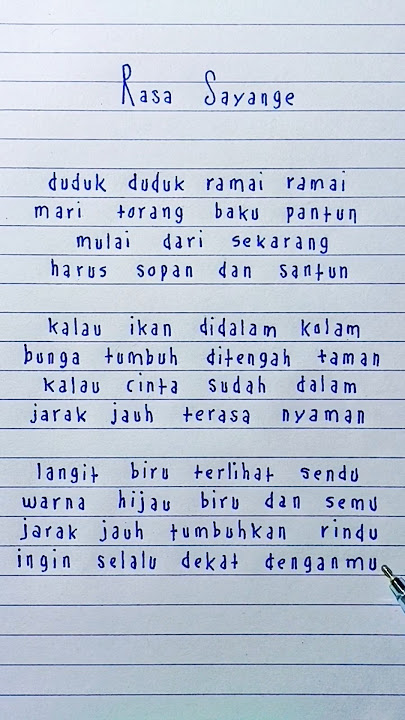 Rasa Sayange
duduk duduk ramai ramai
mari torang baku pantun
mulai dari sekarang
harus sopan dan santun
kalau ikan didalam kolam
bunga tumbuh ditengah taman
kalau cinta sudah dalam
jarak jauh terasa nyaman
langit biru terlihat sendu
warna hijau biru dan semu
jarak jauh tumbuhkan rindu
ingin selalu dekat denganmu